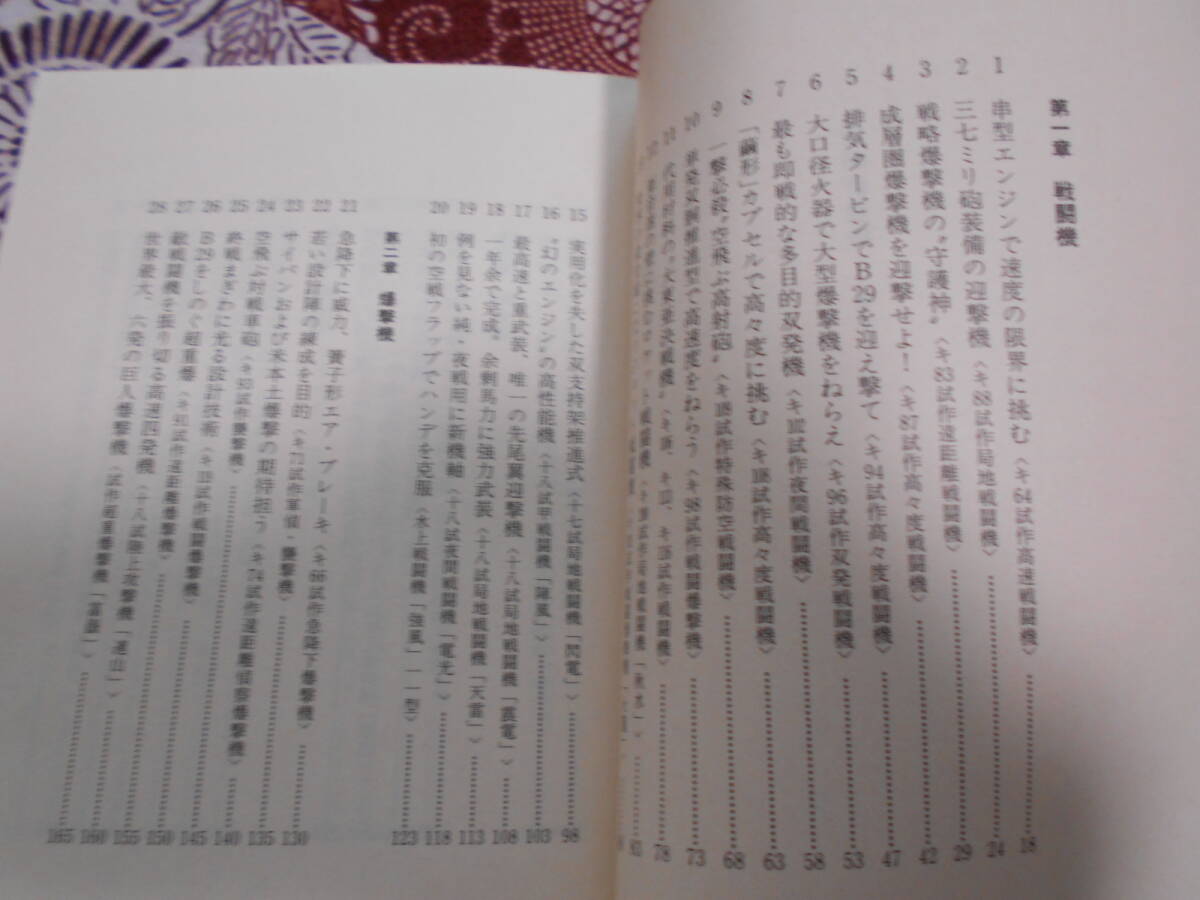 第一章 戦闘機
1 串型エンジンで速度の限界に挑む〈キ64試作高速戦闘機〉 18
2 三七ミリ砲装備の迎撃機〈キ88試作局地戦闘機〉 24
3 戦略爆撃機の〝守護神〟〈キ83試作遠距離戦闘機〉 29
4 成層圏爆撃機を迎撃せよ!〈キ87試作高々度戦闘機〉 42
5 排気タービンでB29を迎え撃て〈キ94試作高々度戦闘機〉 47
6 大口径火器で大型爆撃機をねらえ〈キ96試作双発戦闘機〉 53
7 最も即戦的な多目的双発機〈キ102試作夜間戦闘機〉 58
8 「繭形」カプセルで高々度に挑む〈キ108試作高々度戦闘機〉 63
9 一撃必殺〝空飛ぶ高射砲〟〈キ109試作特殊防空戦闘機〉 68
10 推進式 高速度をねらう〈キ98試作戦闘爆撃機〉 73
11 試作戦闘機〉 78
12 戦闘機「秋水」〉 83
15 実用化を失した双支持架推進式〈十七試局地戦闘機「閃電」〉 98
16 〝幻のエンジン〟の高性能機〈十八試甲戦闘機「陣風」〉 103
17 最高速と重武装、唯一の先尾翼迎撃機〈十八試局地戦闘機「震電」〉 108
18 一年余で完成。余剰馬力に強力武装〈十八試局地戦闘機「天雷」〉 113
19 例を見ない純・夜戦用に新機軸〈十八試夜間戦闘機「電光」〉 118
20 初の空戦フラップでハンデを克服〈水上戦闘機「強風」一一型〉 123
第二章 爆撃機
21 急降下に威力、簀子形エア・ブレーキ〈キ66試作急降下爆撃機〉 130
22 若い設計陣の練成を目的〈キ71試作軍偵・襲撃機〉 135
23 サイパンおよび米本土爆撃の期待担う〈キ74試作遠距離偵察爆撃機〉 140
24 空飛ぶ対戦車砲〈キ93試作襲撃機〉 145
25 終戦まぎわに光る設計技術〈キ119試作戦闘爆撃機〉 150
26 B29をしのぐ超重爆〈キ91試作遠距離爆撃機〉 155
27 敵戦闘機を振り切る高速四発機〈十八試陸上攻撃機「連山」〉 160
28 世界最大、六発の巨人爆撃機〈試作超重爆撃機「富嶽」〉 165